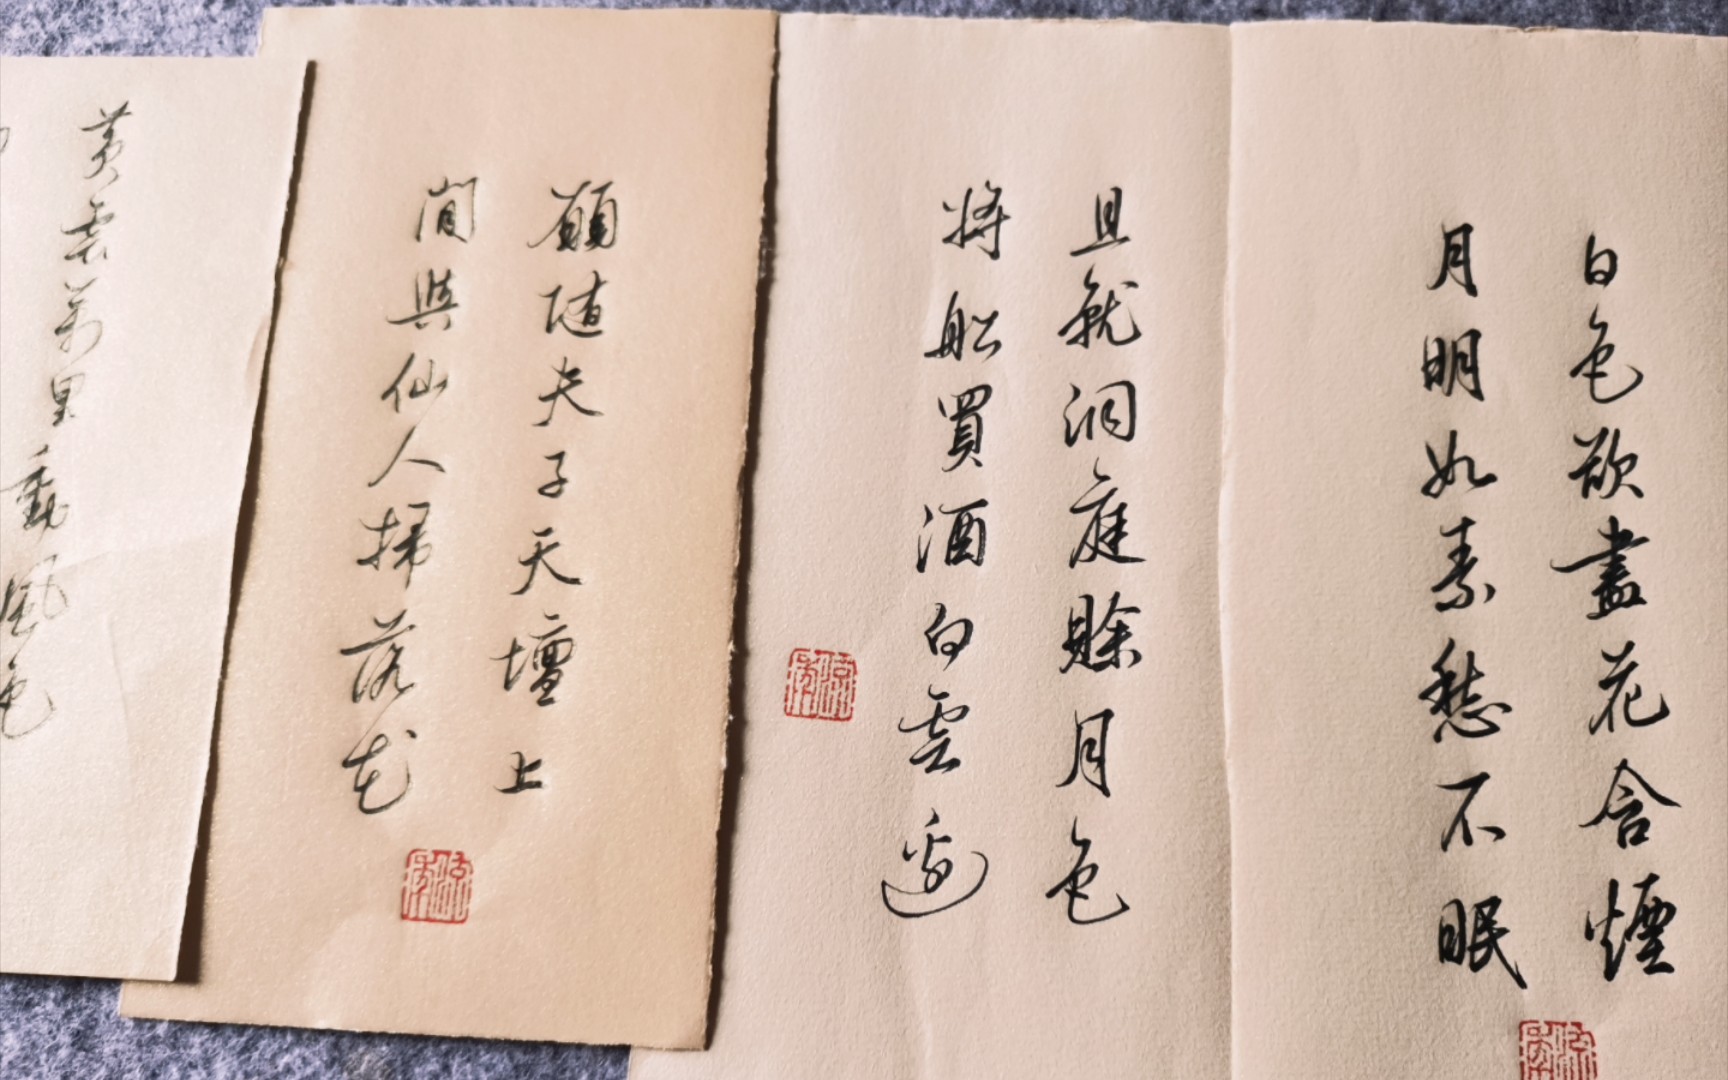 白色欲盡花含煙
月明如素愁不眠
且就洞庭賒月色
將船買酒白雲邊
願隨夫子天壇上
閒與仙人掃落花
黃雲萬里動風色